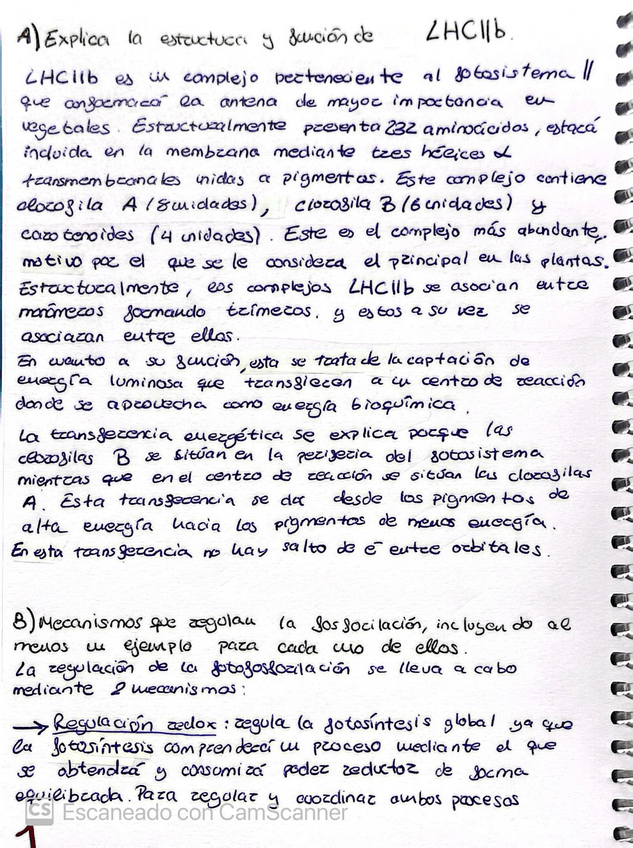 A) Explica la estructura y función de LHCIIb.
LHCIIb es un complejo perteneciente al fotosistema II
que conformará la antena de mayor importancia en
vegetales. Estructuralmente presenta 232 aminoácidos, estará
incluida en la membrana mediante tres hélices α
transmembranales unidas a pigmentos. Este complejo contiene
clorofila A (8 unidades), clorofila B (6 unidades) y
carotenoides (4 unidades). Este es el complejo más abundante,
motivo por el que se le considera el principal en las plantas.
Estructuralmente, los complejos LHCIIb se asocian entre
monómeros formando trímeros, y estos a su vez se
asociaran entre ellos.
En cuanto a su función, esta se trata de la captación de
energía luminosa que transfieren a un centro de reacción
donde se aprovecha como energía bioquímica.
La transferencia energética se explica porque las
clorofilas B se sitúan en la periferia del fotosistema
mientras que en el centro de reacción se sitúan las clorofilas
A. Esta transferencia se da desde los pigmentos de
alta energía hacia los pigmentos de menos energía.
En esta transferencia no hay salto de e⁻ entre orbitales.
B) Mecanismos que regulan la fosforilación, incluyendo al
menos un ejemplo para cada uno de ellos.
La regulación de la fotofosforilación se lleva a cabo
mediante 2 mecanismos:
→ Regulación redox: regula la fotosíntesis global ya que
la fotosíntesis comprenderá un proceso mediante el que
se obtendrá y consumirá poder reductor de forma
equilibrada. Para regular y coordinar ambos procesos
CS Escaneado con CamScanner
1